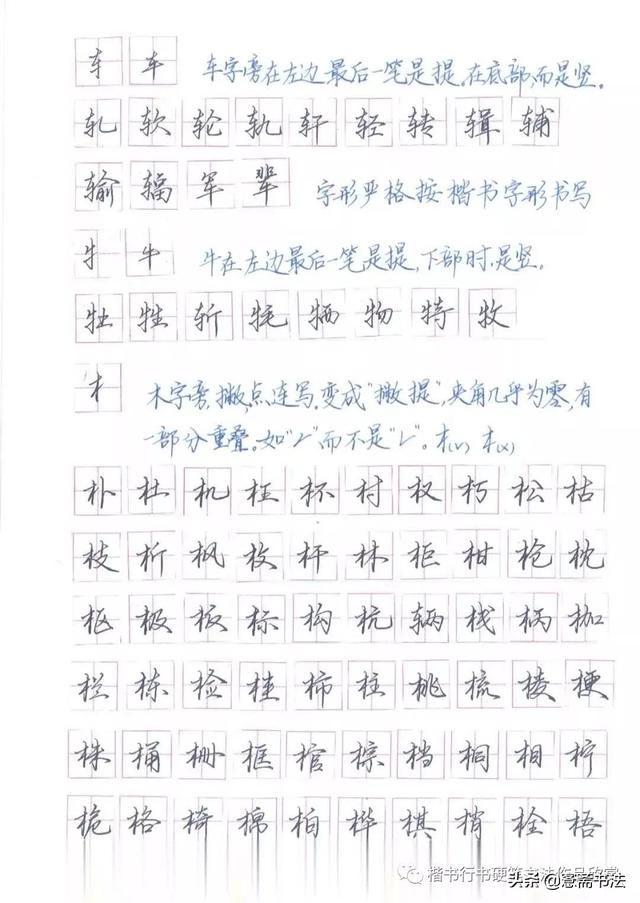 车 车 车字旁在左边最后一笔是提。在底部，而是竖。
轧 软 轮 轨 轩 轻 转 辑 辅
输 辐 军 辈 字形严格按楷书字形书写
牛 牛 牛在左边最后一笔是提，下部时，是竖。
牡 牲 斩 牦 牺 物 特 牧
木 木字旁，撇、点、连写。变成“撇提”，夹角几乎为零，有
一部分重叠。如“ㄥ”而不是“ㄥ”。木(√) 木(×)
朴 杜 机 枉 杯 村 权 朽 松 枯
枝 析 枫 枚 杆 林 柜 柑 枪 枕
枢 极 板 标 构 杭 辆 栈 柄 枷
栏 栋 检 桂 柿 柱 桃 梳 棱 梗
株 桶 栅 框 棺 棕 档 桐 相 柠
桅 格 椅 棉 柏 桦 棋 梢 栓 梧
楷书行书硬笔书法作品欣赏
头条@慧斋书法